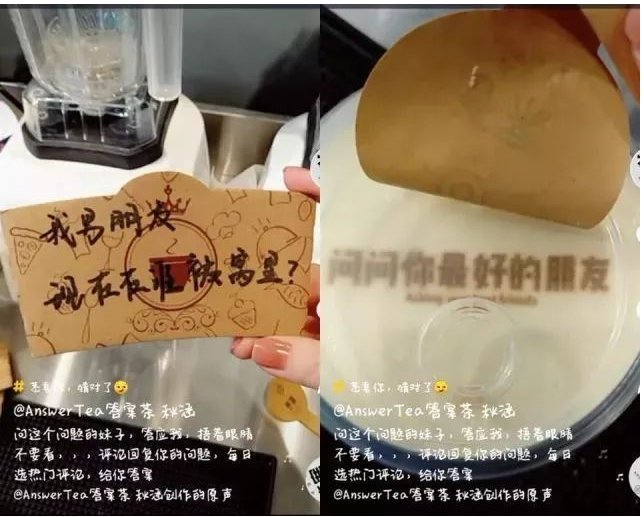 我男朋友
现在在谁被窝里?
#恶意你,猜对了😏
@AnswerTea答案茶 秋涵
问这个问题的妹子,答应我,捂着眼睛
不要看,,,评论回复你的问题,每日
选热门评论,给你答案
@AnswerTea答案茶 秋涵创作的原声
问问你最好的朋友
Asking your best friends
#恶意你,猜对了😏
@AnswerTea答案茶 秋涵
问这个问题的妹子,答应我,捂着眼睛
不要看,,,评论回复你的问题,每日
选热门评论,给你答案
@AnswerTea答案茶 秋涵创作的原声